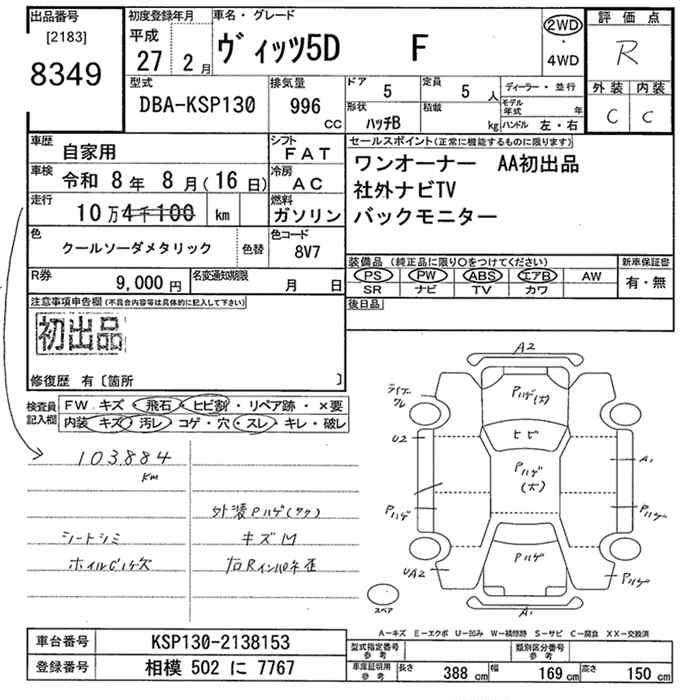 出品番号
[2183]
8349
初度登録年月
平成
27 2月
車名・グレード
ヴィッツ5D F
2WD
・
4WD
評価点
R
外装 内装
C C
型式
DBA-KSP130
排気量
996
CC
ドア 5
定員 5 人
形状 ハッチB
積載 kg
ディーラー・並行
モデル年式 年
ハンドル 左・右
車歴
自家用
シフト
FAT
車検
令和 8年 8月(16日)
冷房
AC
走行
10万4千100 km
燃料
ガソリン
色
クールソーダメタリック
色替
色コード
8V7
R券
9,000円
名変通知期限
月 日
セールスポイント(正常に機能するものに限ります)
ワンオーナー AA初出品
社外ナビTV
バックモニター
装備品 (純正品に限り○をつけてください)
PS PW ABS エアB AW
SR ナビ TV カワ
新車保証書
有・無
後日品
注意事項申告欄(不具合内容等は具体的に記入して下さい)
初出品
修復歴 有〔箇所 〕
検査員
記入欄
FW キズ・飛石・ヒビ割・リペア跡・×要
内装・キズ・汚レ・コゲ・穴・スレ・キレ・破レ
103,884
km
外装Pハゲ(タタ)
シートシミ
キズM
右Rインパネ歪
A2
Pハゲ(大)
ヒビ
U2
A1
Pハゲ
(大)
Pハゲ
Pハゲ
Pハゲ
UA2
Pハゲ
A1
スペア
A-キズ E-エクボ U-凹み W-補修跡 S-サビ C-腐食 XX-交換済
車台番号
KSP130-2138153
登録番号
相模 502 に 7767
型式指定番号
参考
類別区分番号
参考
車庫証明用
参考
長さ 388 cm
幅 169 cm
高さ 150 cm